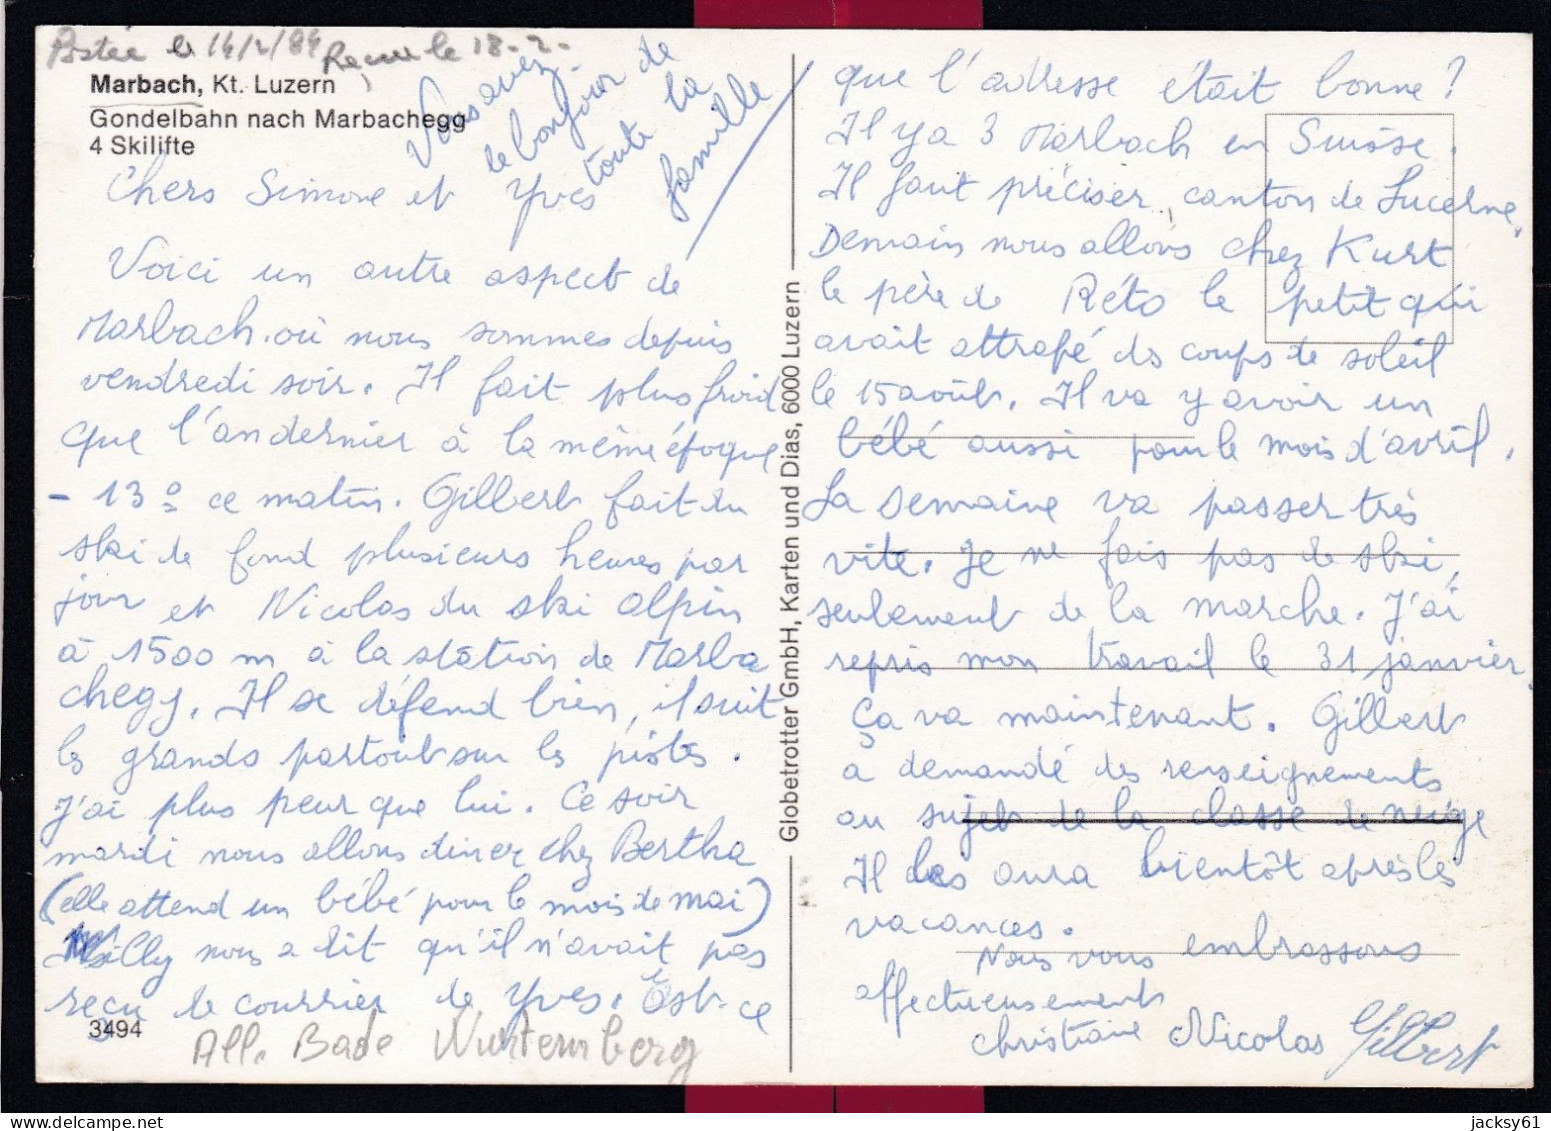 Postée le 14/2/84 Reçue le 18-2-
Marbach, Kt. Luzern
Gondelbahn nach Marbachegg
4 Skilifte
Vous avez
le bonjour de
toute la
famille
Chers Simone et Yves
Voici un autre aspect de
Marbach où nous sommes depuis
vendredi soir. Il fait plus froid
que l'an dernier à la même époque
- 13° ce matin. Gilbert fait du
ski de fond plusieurs heures par
jour et Nicolas du ski alpin
à 1500 m à la station de Marba
chegg. Il se défend bien, il suit
les grands partout sur les pistes.
J'ai plus peur que lui. Ce soir
mardi nous allons diner chez Bertha
(elle attend un bébé pour le mois de mai)
Willy nous a dit qu'il n'avait pas
reçu le courrier de Yves. Est-ce
3494
All. Bade Wurtemberg
Globetrotter GmbH, Karten und Dias, 6000 Luzern
que l'adresse était bonne ?
Il y a 3 Marbach en Suisse.
Il faut préciser canton de Lucerne.
Demain nous allons chez Kurt
le père de Réto le petit qui
avait attrapé des coups de soleil
le 15 août. Il va y avoir un
bébé aussi pour le mois d'avril.
La semaine va passer très
vite. Je ne fais pas de ski,
seulement de la marche. J'ai
repris mon travail le 31 janvier.
ça va maintenant. Gilbert
a demandé des renseignements
au sujet de la classe de neige
Il les aura bientôt après les
vacances.
Nous vous embrassons
affectueusement
Christiane Nicolas Gilbert
jacksy61